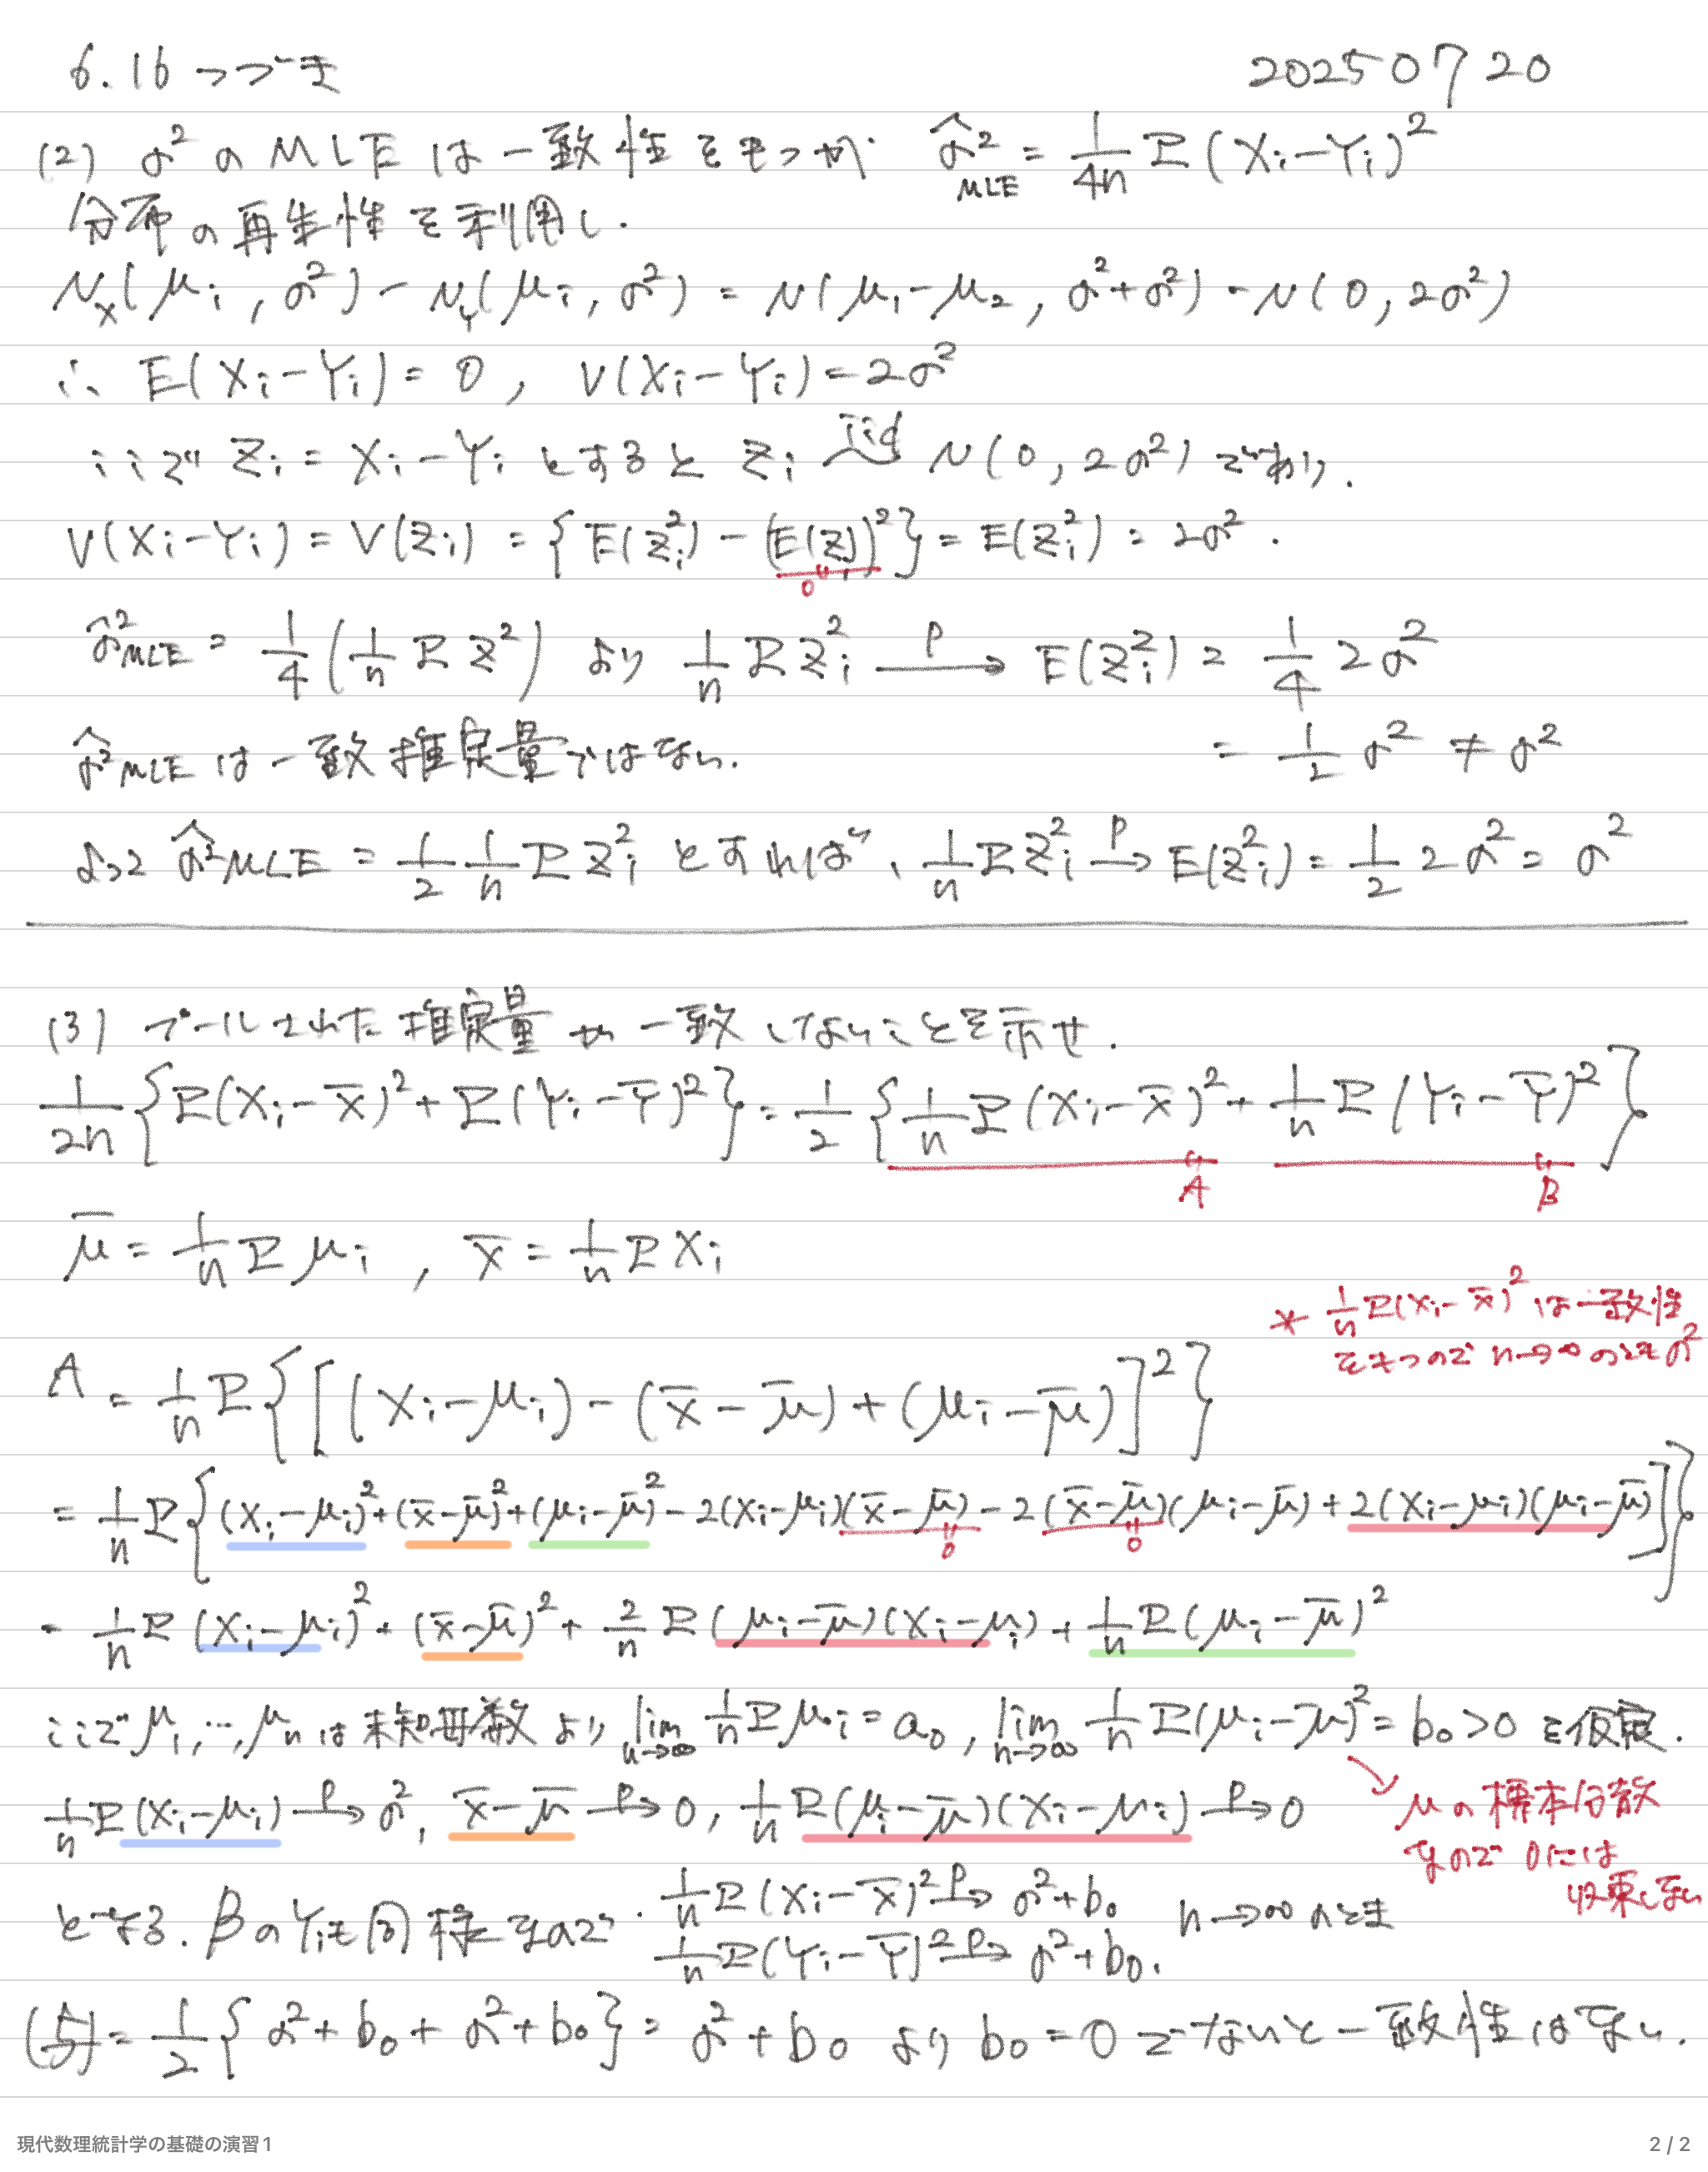 6.16 つづき 20250720
(2) σ²のMLEは一致性をもつか. σ̂²MLE = 1/4n Σ(Xi−Yi)²
分布の再生性を利用し.
Nx(μi, σ²) − Ny(μi, σ²) = N(μ1−μ2, σ²+σ²) = N(0, 2σ²)
∴ E(Xi−Yi) = 0, V(Xi−Yi) = 2σ²
ここで Zi = Xi−Yi とすると Zi iid〜 N(0, 2σ²) であり.
V(Xi−Yi) = V(Zi) = {E(Zi²) − (E(Zi))²} = E(Zi²) = 2σ².
0
σ̂²MLE = 1/4 (1/n Σ Z²) より 1/n Σ Zi² →p E(Zi²) = 1/4 2σ²
σ̂²MLEは一致推定量ではない. = 1/2 σ² ≠ σ²
よって σ̂²MLE = 1/2 1/n Σ Zi² とすれば、1/n Σ Zi² →p E(Zi²) = 1/2 2σ² = σ²
(3) プールされた推定量が一致しないことを示せ.
1/2n {Σ(Xi−X̄)² + Σ(Yi−Ȳ)²} = 1/2 {1/n Σ(Xi−X̄)² + 1/n Σ(Yi−Ȳ)²}
A B
μ̄ = 1/n Σ μi, X̄ = 1/n Σ Xi
* 1/n Σ(Xi−X̄)² は一致性
をもつので n→∞ のときσ²
A = 1/n Σ{[(Xi−μi) − (X̄−μ̄) + (μi−μ̄)]²}
= 1/n Σ{(Xi−μi)² + (X̄−μ̄)² + (μi−μ̄)² − 2(Xi−μi)(X̄−μ̄) − 2(X̄−μ̄)(μi−μ̄) + 2(Xi−μi)(μi−μ̄)]}
0 0
= 1/n Σ(Xi−μi)² + (X̄−μ̄)² + 2/n Σ(μi−μ̄)(Xi−μi) + 1/n Σ(μi−μ̄)²
ここでμ1,…,μnは未知母数より lim n→∞ 1/n Σμi = a0, lim n→∞ 1/n Σ(μi−μ̄)² = b0 > 0 を仮定.
1/n Σ(Xi−μi) →p σ², X̄−μ̄ →p 0, 1/n Σ(μi−μ̄)(Xi−μi) →p 0
μの標本分散
なので 0には
収束しない
となる. BのYiも同様なので. 1/n Σ(Xi−X̄)² →p σ²+b0 n→∞ のとき
1/n Σ(Yi−Ȳ)² →p σ²+b0.
(与) = 1/2 {σ²+b0+σ²+b0} = σ²+b0 より b0=0 でないと一致性はない.
現代数理統計学の基礎の演習1 2 / 2